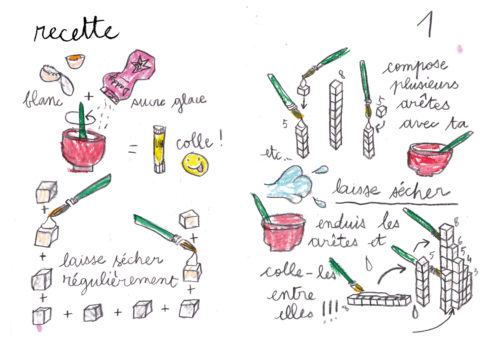 recette
blanc + sucre glace
= colle !
+
+
+
+
+
laisse sécher
régulièrement
+ + +
1
compose
plusieurs
arêtes
avec ta
8
5
5
etc...
laisse sécher
enduis les
arêtes et
colle-les
entre
elles !!!
8
5
6
5
4
3